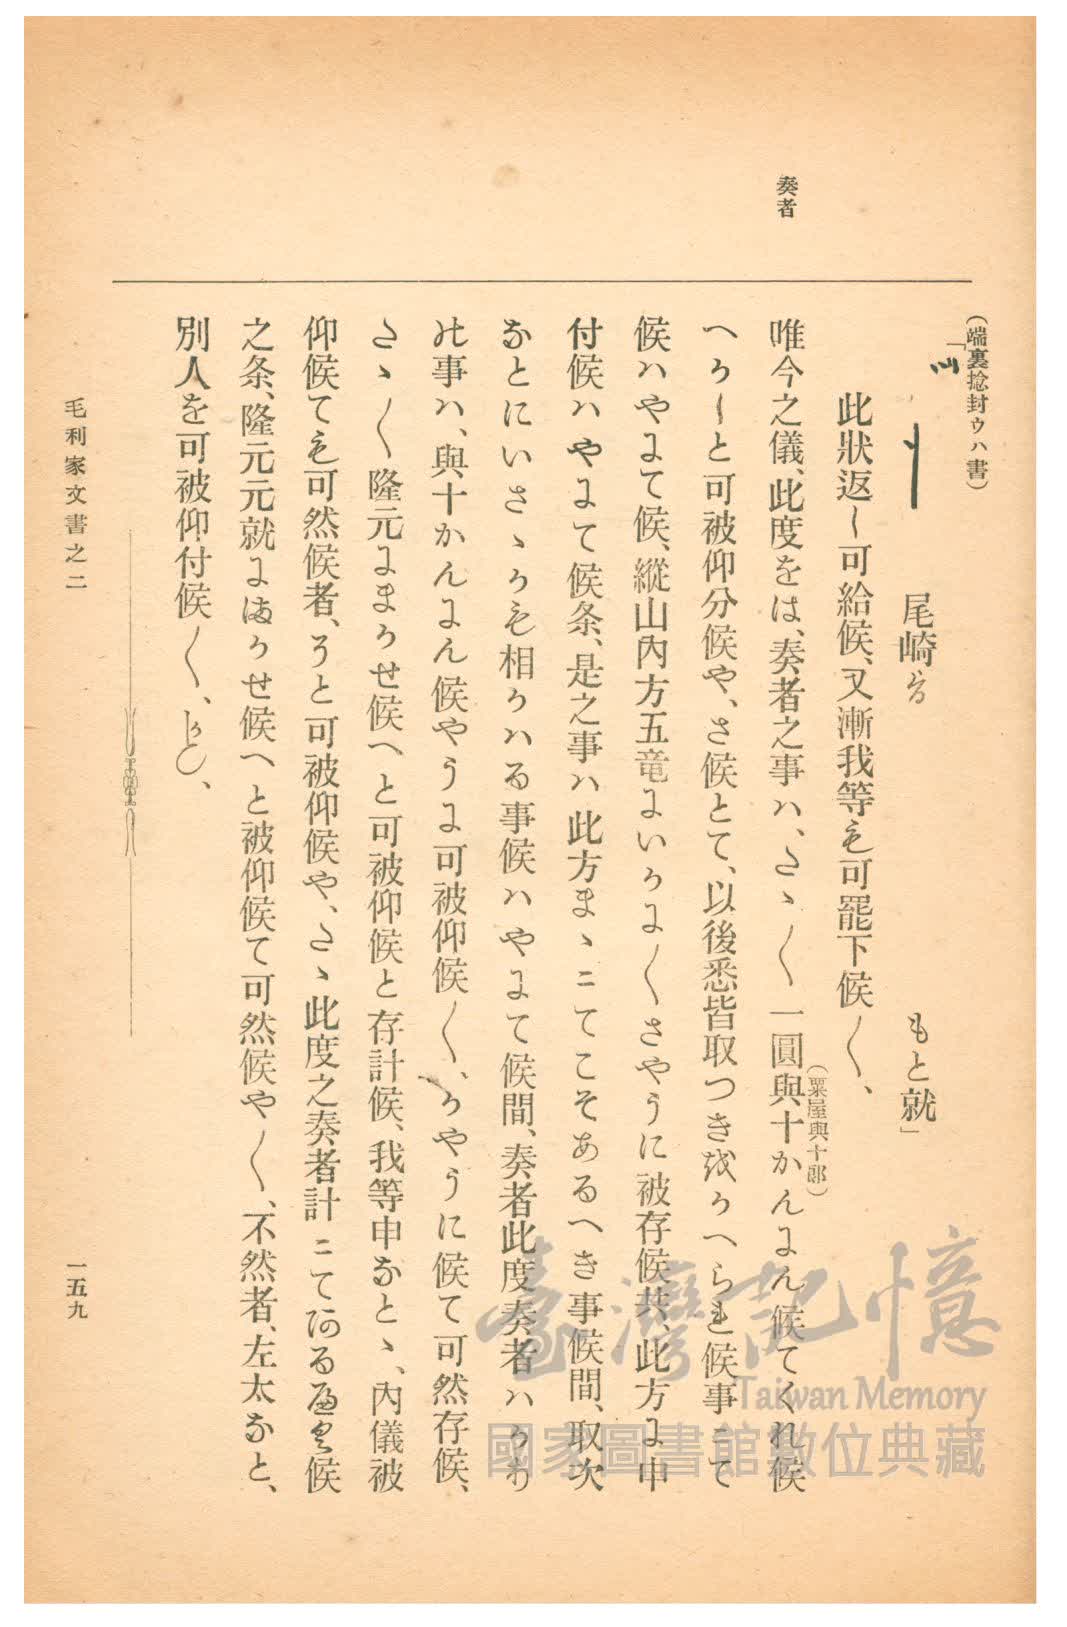 奏者
(端裏捻封ウハ書)
「
尾崎ゟ もと就」
此狀返〳〵可給候、又漸我等も可罷下候〳〵、
(粟屋與十郞)
唯今之儀、此度をは、奏者之事ハ、たゝ〳〵一圓與十かんにん候てくれ候
へかしと可被仰分候や、さ候とて、以後悉皆取つき越かへられ候事ニて
候ハやにて候、縱山內方五竜にいかに〳〵さやうに被存候共、此方に申
付候ハやにて候条、是之事ハ此方まゝニてこそあるへき事候間、取次
なとにいさゝかも相かハる事候ハやにて候間、奏者此度奏者ハかわ
此事ハ、與十かんにん候やうに可被仰候〳〵、かやうに候て可然存候、
たゝ〳〵隆元にまかせ候へと可被仰候と存計候、我等申なとゝ、內儀被
仰候ても可然候者、そと可被仰候や、たゝ此度之奏者計ニてある歴々候
之条、隆元元就にまかせ候へと被仰候て可然候や〳〵、不然者、左太なと、
別人を可被仰付候〳〵、かしく、
毛利家文書之二
一五九
臺灣記憶
Taiwan Memory
國家圖書館數位典藏